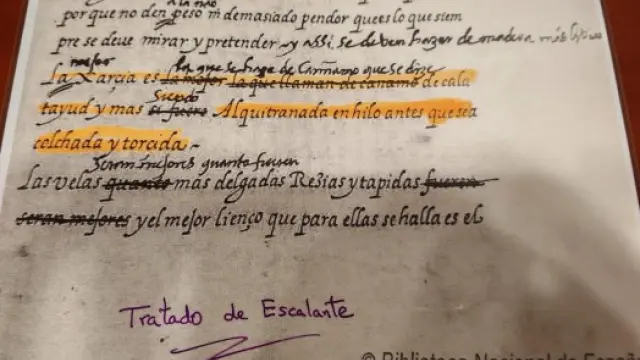 a la nao
por que no den peso ni demasiado pendor quees lo que siem
pre se deve mirar y pretender y assi se deben hazer de madera mas
mejor la que se haze de Cañamo que se dize
La Xarçia es la mejor la que llaman de cañamo de cala
siendo
tayud y mas si fuere Alquitranada en hilo antes que sea
colchada y torcida
seran mejores quanto fueren
Las velas quanto mas delgadas Rezias y tapidas fueren
seran mejores y el mejor lienço que para ellas se halla es el
Tratado de Escalante
© Biblioteca Nacional de España